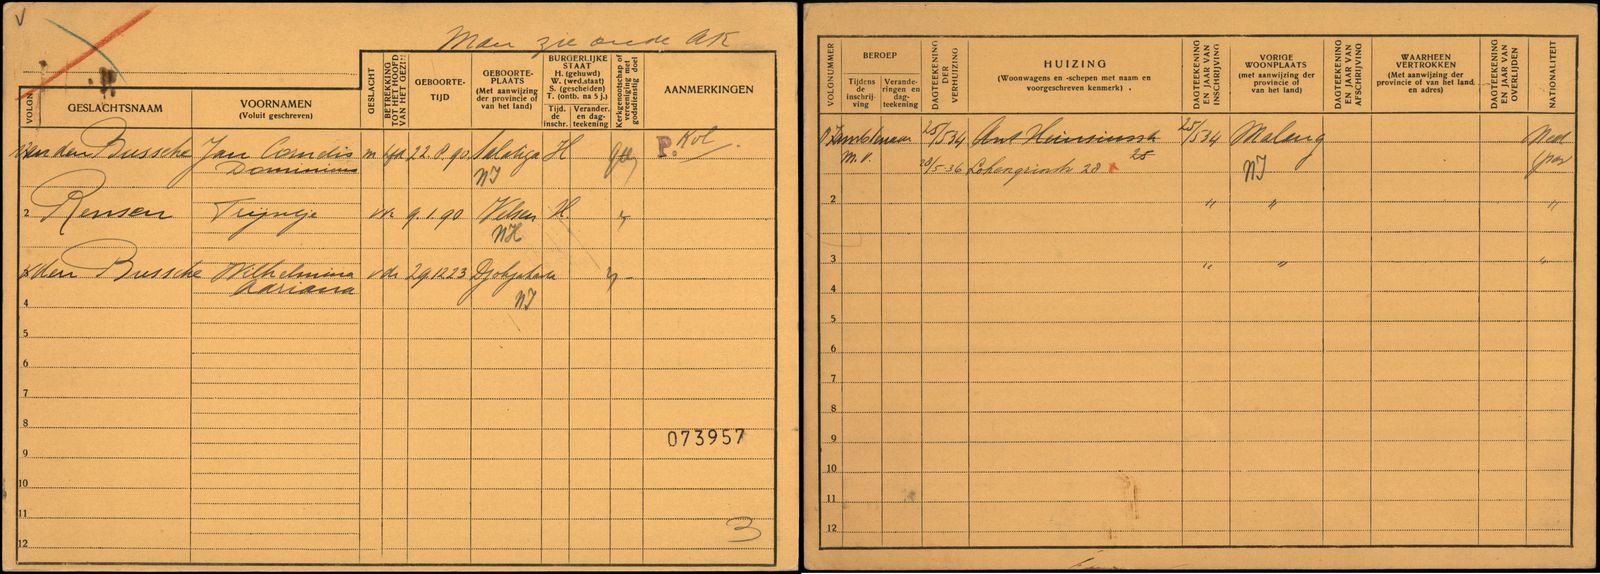 V
Man zie oude AK
VOLGN.
GESLACHTSNAAM
VOORNAMEN
(Voluit geschreven)
GESLACHT
BETREKKING
TOT HET HOOFD
VAN HET GEZIN
GEBOORTE-
TIJD
GEBOORTE-
PLAATS
(Met aanwijzing
der provincie of
van het land)
BURGERLIJKE
STAAT
H. (gehuwd)
W. (wed.staat)
S. (gescheiden)
T. (ontb. na 5 j.)
Tijd.
de
inschr.
Verander.
en dag-
teekening
Kerkgenootschap of
vereeniging met
godsdienstig doel
AANMERKINGEN
van den Bussche Jan Cornelis m hfd 22.8.90 Salatiga H P. Kol
NI
2 Rensen Trijntje vr. 9.1.90 Velsen H.
NH
v den Bussche Wilhelmina 29.12.23 Djokjakarta
Adriana NI
4
5
6
7
8
073957
9
10
11
3
12
VOLGNUMMER
BEROEP
Tijdens
de
inschrij-
ving
Verande-
ringen en
dag-
teekening
DAGTEEKENING
DER
VERHUIZING
HUIZING
(Woonwagens en -schepen met naam en
voorgeschreven kenmerk) .
DAGTEEKENING
EN JAAR VAN
INSCHRIJVING
VORIGE
WOONPLAATS
(met aanwijzing der
provincie of
van het land)
DAGTEEKENING
EN JAAR VAN
AFSCHRIJVING
WAARHEEN
VERTROKKEN
(Met aanwijzing der
provincie of van het land,
en adres)
DAGTEEKENING
EN JAAR VAN
OVERLIJDEN
NATIONALITEIT
25/5 34 Ant Heinsiusstr 25/5 34 Malang Ned
28
28/5-36 Lohengrinstr 28 NI
2 " " "
3 " " "
4
5
6
7
8
9
10
11
12